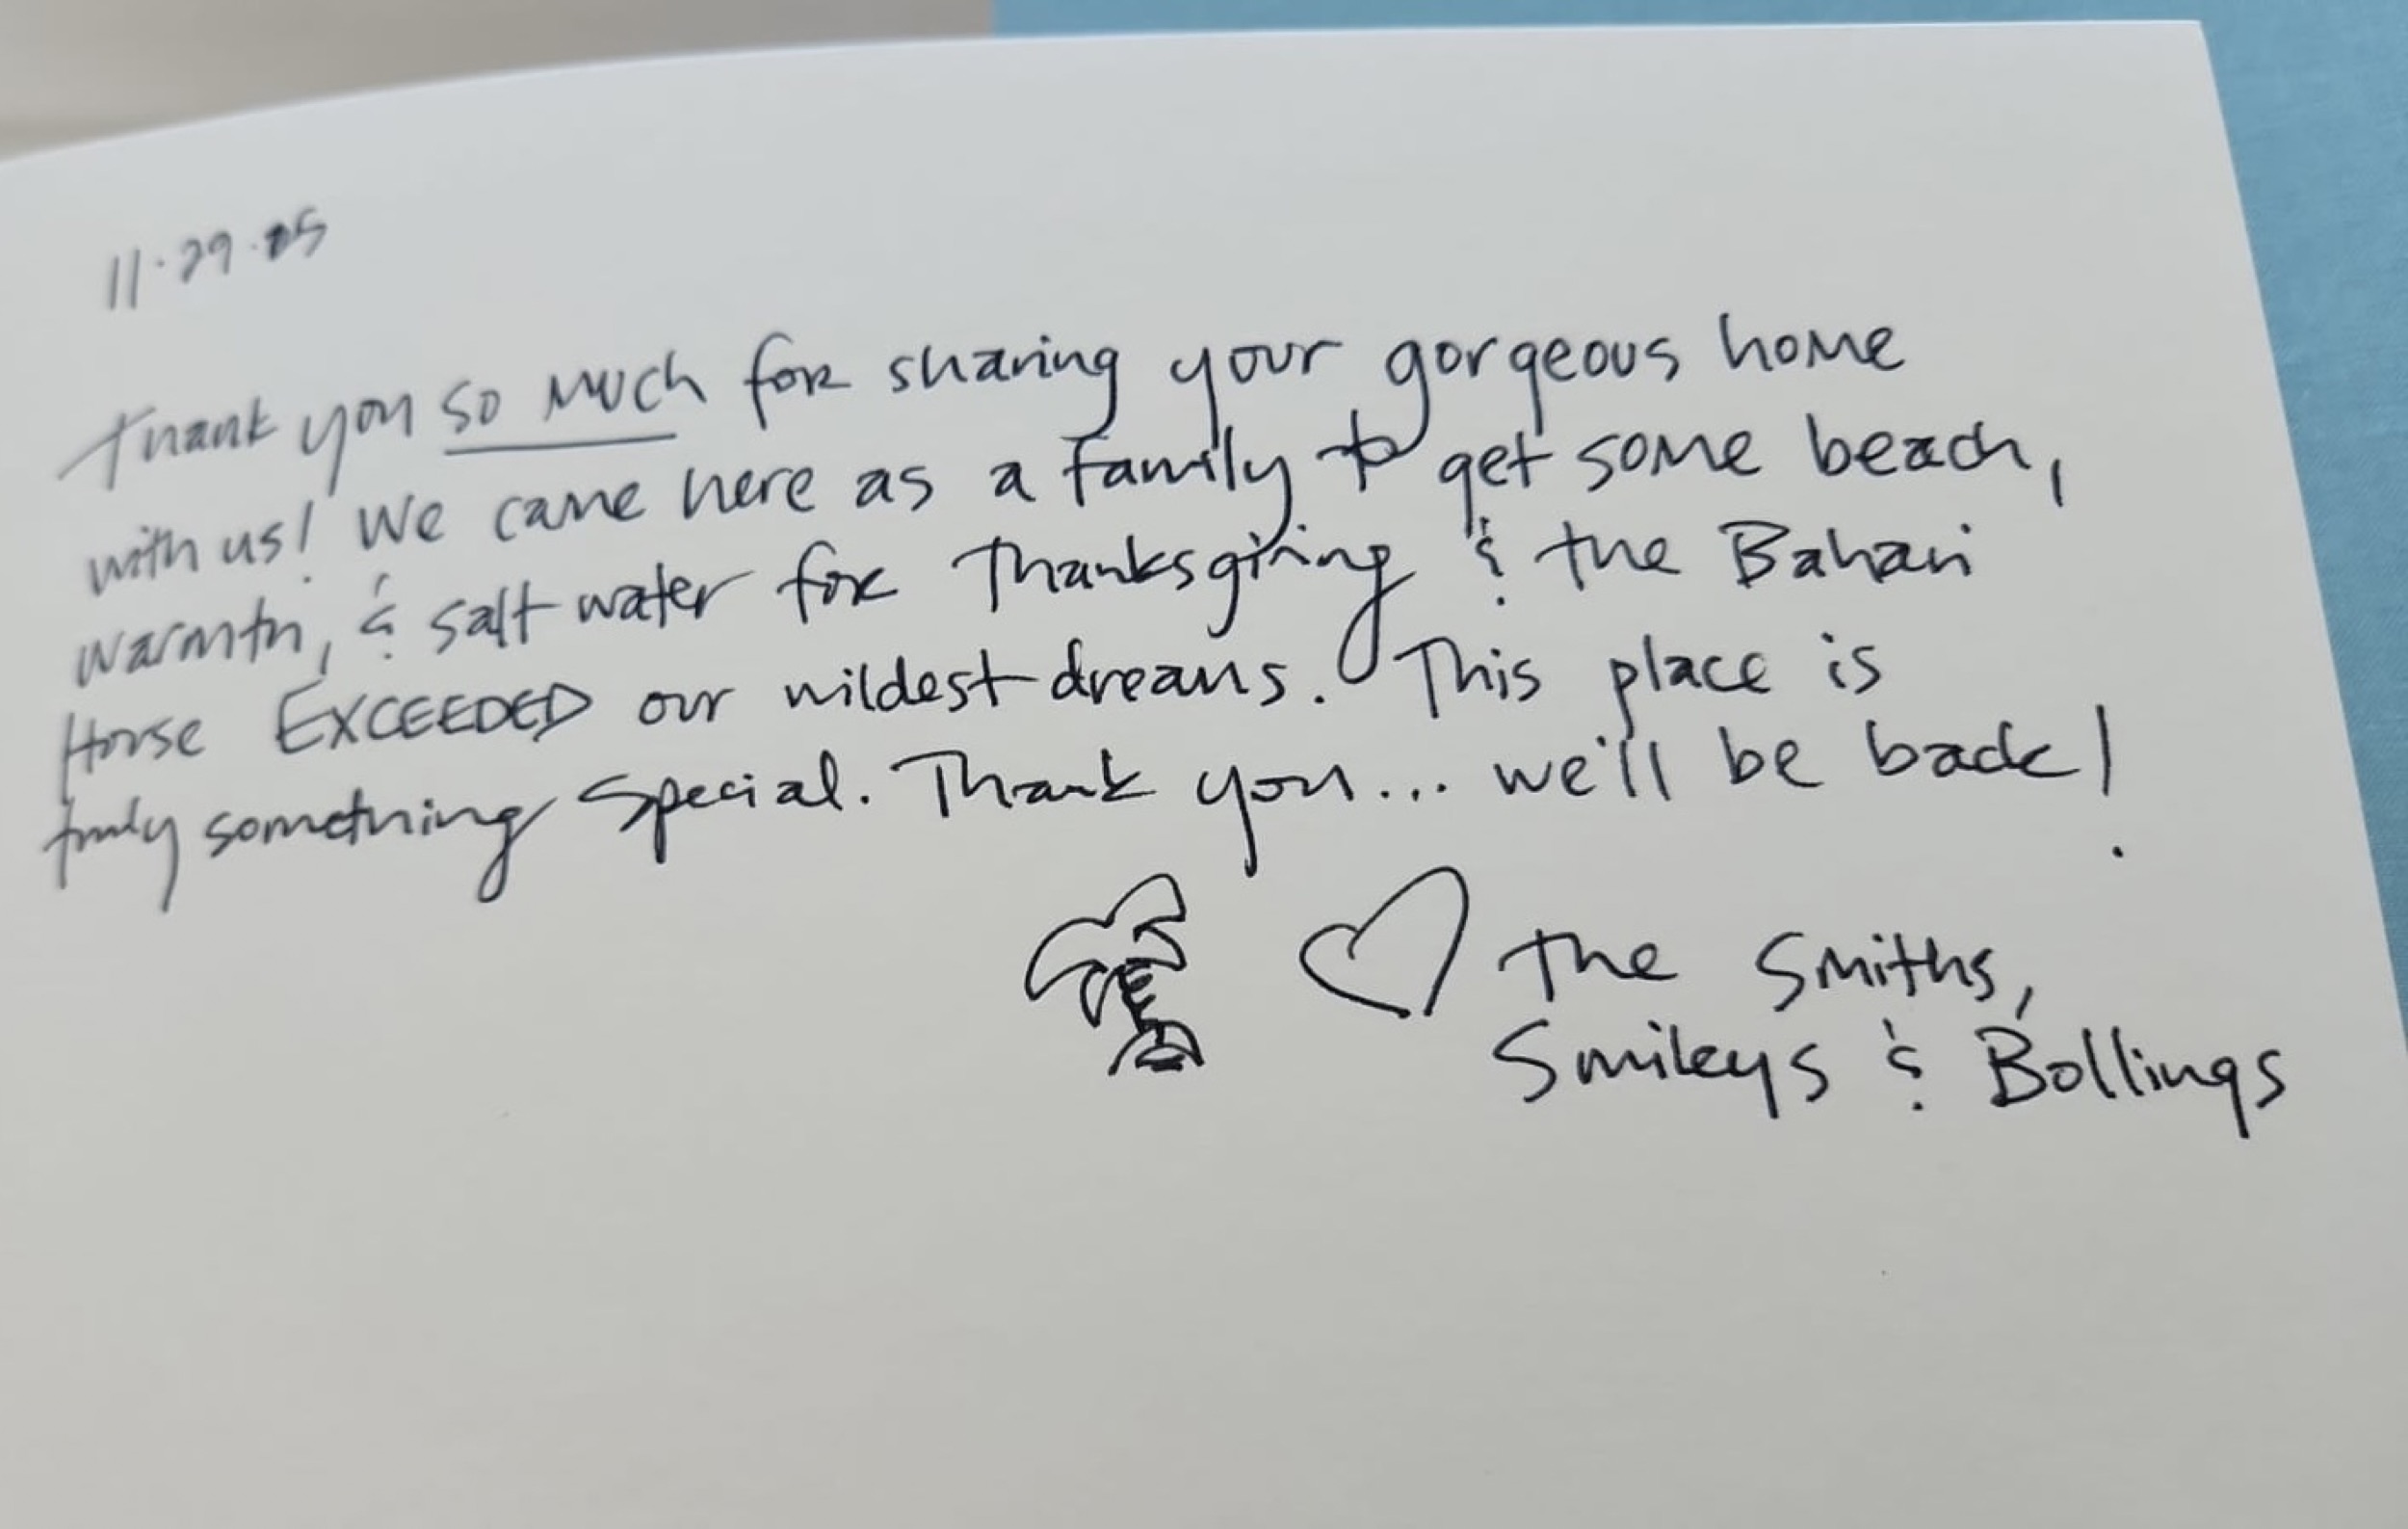 11.29.25
Thank you so much for sharing your gorgeous home
with us! We came here as a family to get some beach,
warmth, & salt water for Thanksgiving & the Bahari
House EXCEEDED our wildest dreams. This place is
truly something special. Thank you... we'll be back!
the Smiths,
Smileys & Bollings